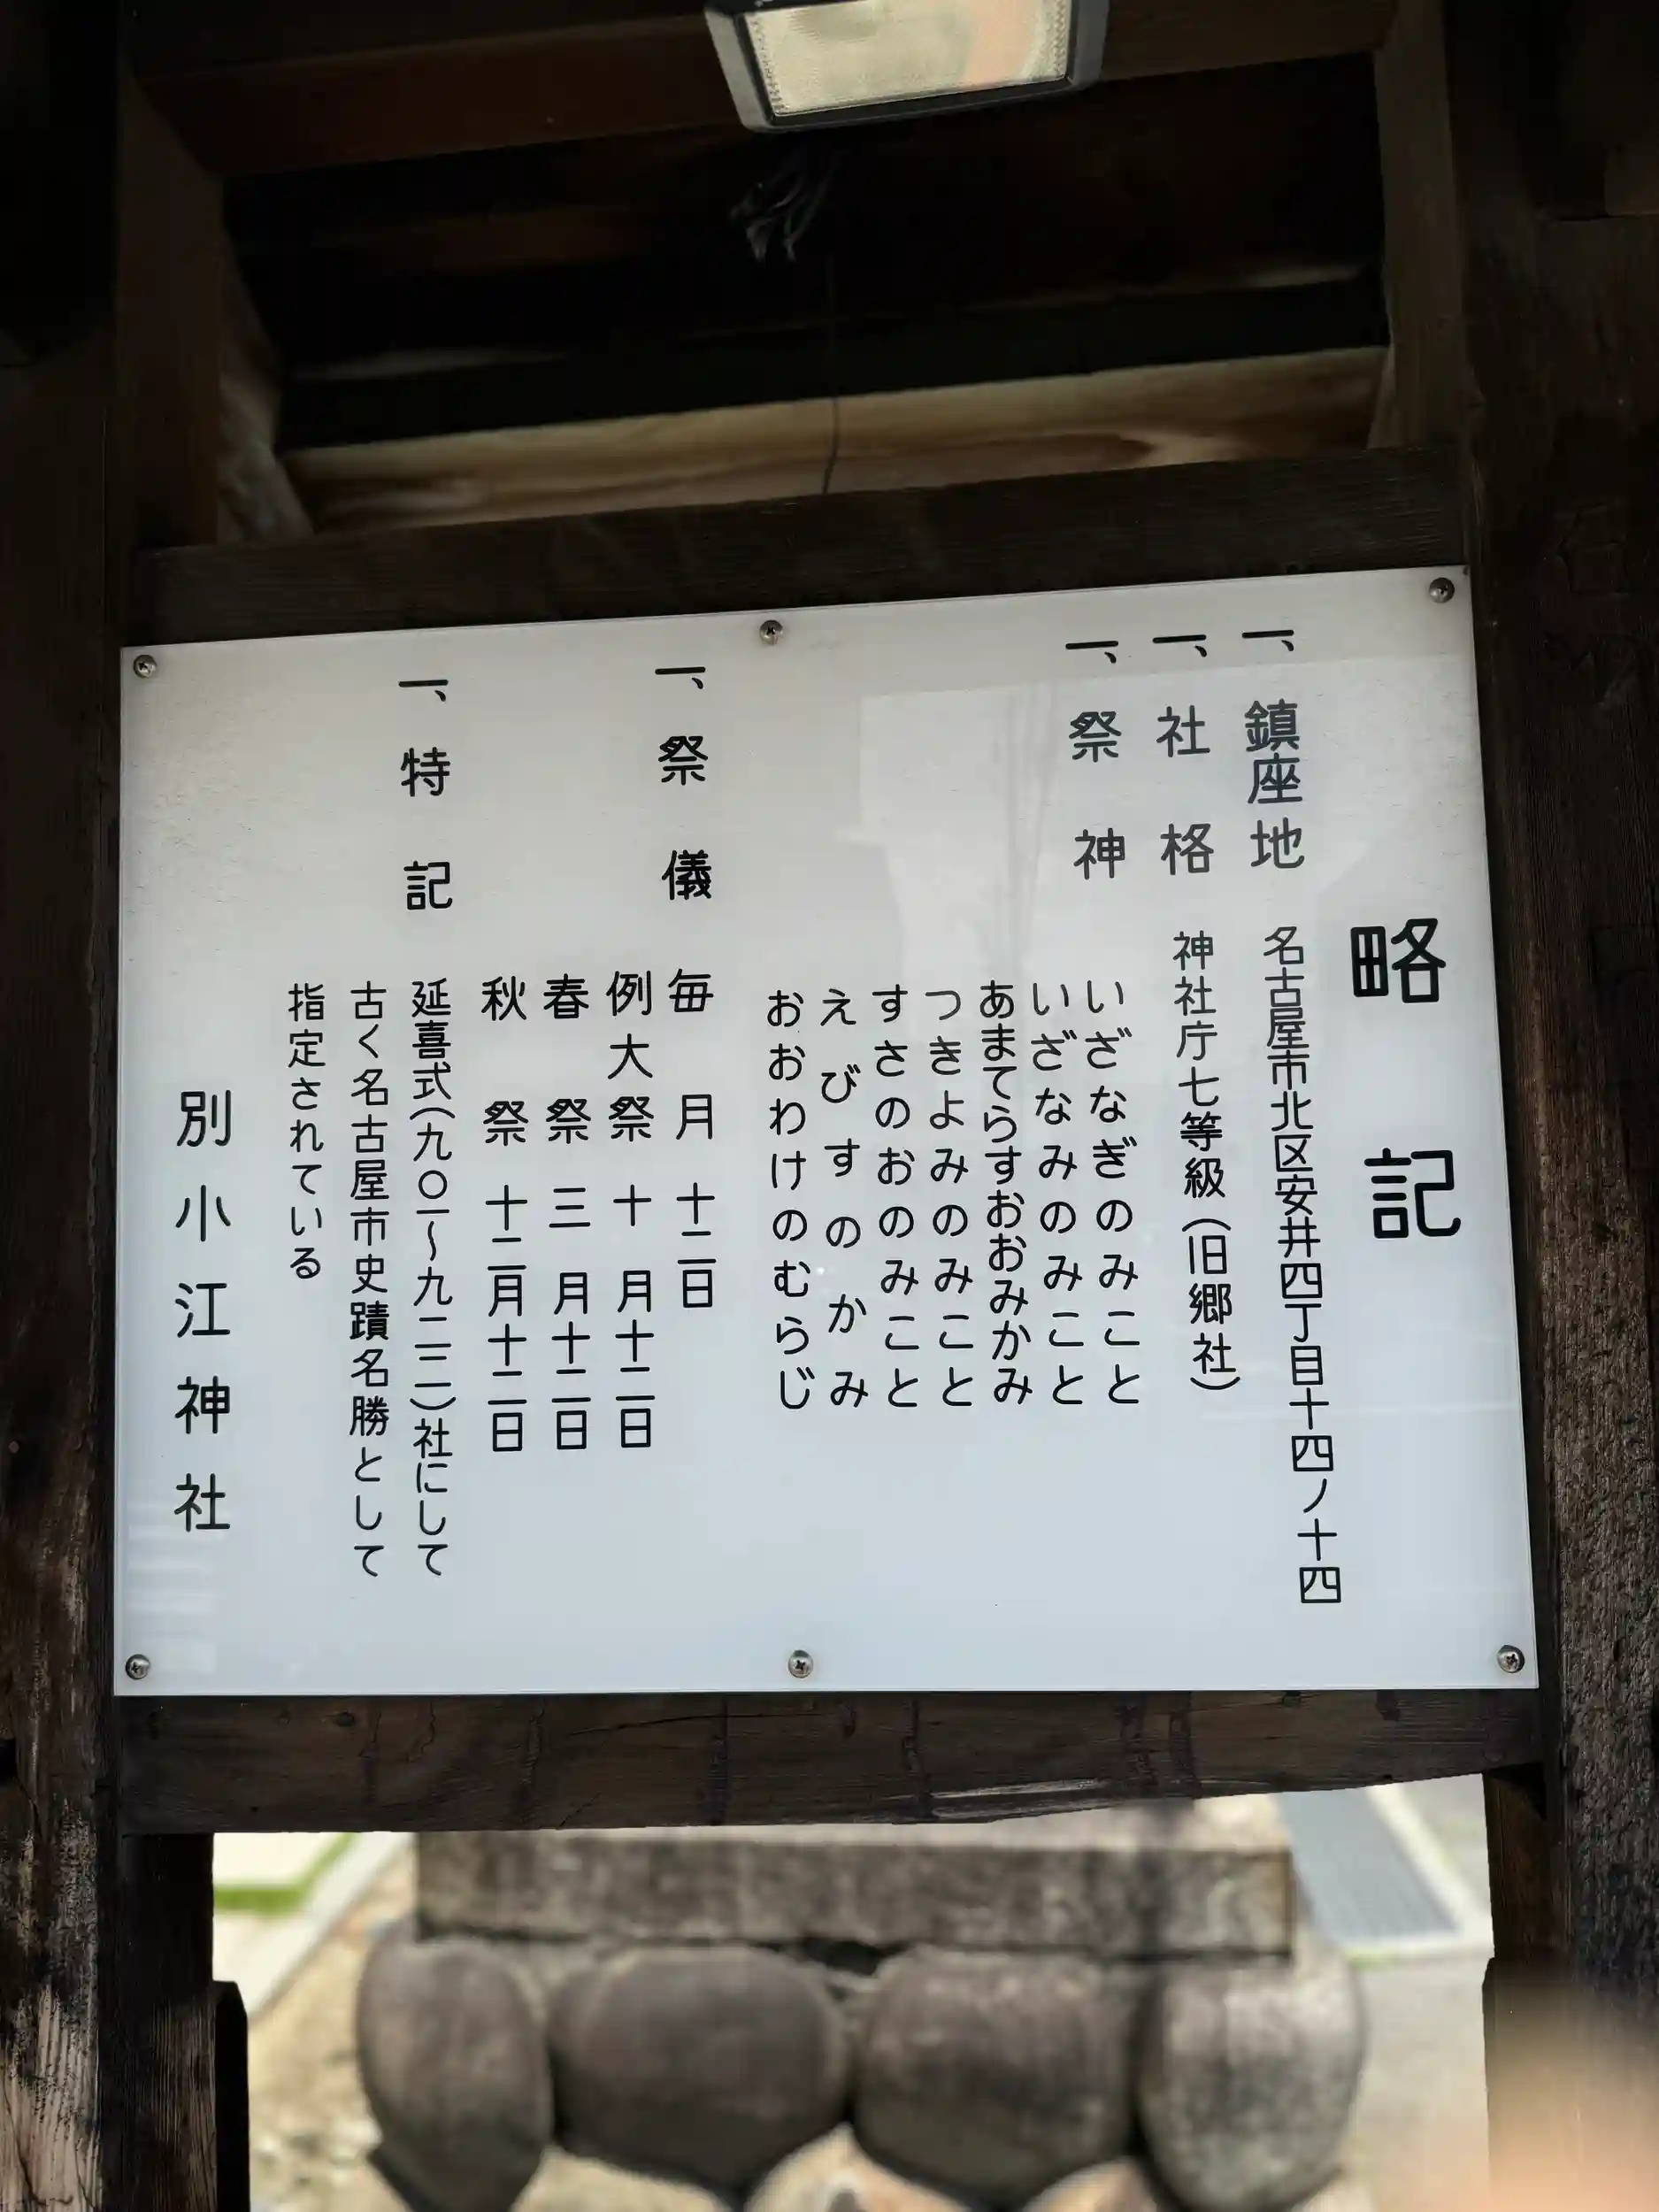 略記
一、鎮座地 名古屋市北区安井四丁目十四ノ十四
一、社格 神社庁七等級(旧郷社)
一、祭神 いざなぎのみこと
いざなみのみこと
あまてらすおおみかみ
つきよみのみこと
すさのおのみこと
えびすのかみ
おおわけのむらじ
一、祭儀 毎月十二日
例大祭 十月十二日
春祭 三月十二日
秋祭 十二月十二日
一、特記 延喜式(九〇一〜九二二)社にして
古く名古屋市史蹟名勝として
指定されている
別小江神社